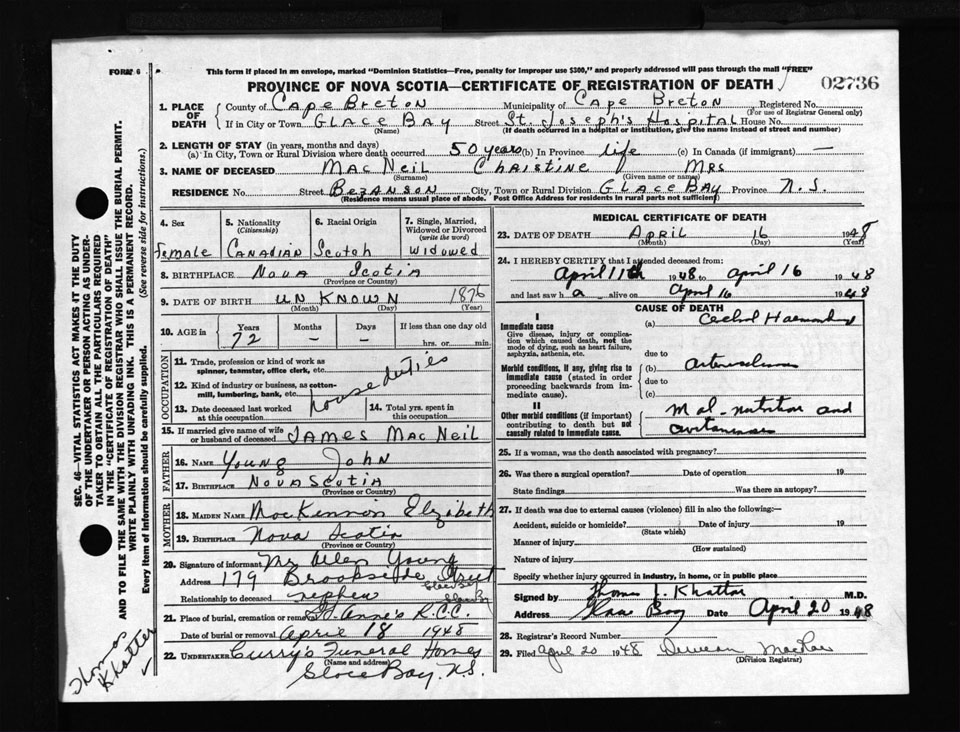 FORM 6
This form if placed in an envelope, marked "Dominion Statistics—Free, penalty for improper use $300," and properly addressed will pass through the mail "FREE"
PROVINCE OF NOVA SCOTIA—CERTIFICATE OF REGISTRATION OF DEATH
02736
1. PLACE OF DEATH
County of Cape Breton Municipality of Cape Breton Registered No.
(For use of Registrar General only)
If in City or Town GLACE BAY Street St. Joseph's Hospital House No.
(Name) (If death occurred in a hospital or institution, give the name instead of street and number)
2. LENGTH OF STAY (in years, months and days)
(a) In City, Town or Rural Division where death occurred 50 years (b) In Province life (c) In Canada (if immigrant) —
3. NAME OF DECEASED MacNeil Christine Mrs
(Surname) (Given name or names)
RESIDENCE No. Street Bezanson City, Town or Rural Division GLACE BAY Province N.S.
(Residence means usual place of abode. Post Office Address for residents in rural parts not sufficient)
4. Sex
Female
5. Nationality
(Citizenship)
Canadian
6. Racial Origin
Scotch
7. Single, Married, Widowed or Divorced
(write the word)
Widowed
8. BIRTHPLACE Nova Scotia
(Province or Country)
9. DATE OF BIRTH UNKNOWN 1876
(Month) (Day) (Year)
10. AGE in
Years Months Days If less than one day old
72 – – hrs. or min.
OCCUPATION
11. Trade, profession or kind of work as spinner, teamster, office clerk, etc.
12. Kind of industry or business, as cotton-mill, lumbering, bank, etc.
House duties
13. Date deceased last worked at this occupation
14. Total yrs. spent in this occupation
15. If married give name of wife or husband of deceased JAMES MacNeil
FATHER
16. NAME Young John
17. BIRTHPLACE NOVA SCOTIA
(Province or Country)
MOTHER
18. MAIDEN NAME MacKinnon Elizabeth
19. BIRTHPLACE Nova Scotia
(Province or Country)
20. Signature of informant Mr Allen Young
Address 179 Brookside Street
Glace Bay
Relationship to deceased nephew
21. Place of burial, cremation or removal St Anne's R.C.C.
Date of burial or removal April 18 1948
22. UNDERTAKER Curry's Funeral Homes
(Name and address)
Glace Bay. N.S.
MEDICAL CERTIFICATE OF DEATH
23. DATE OF DEATH April 16 1948
(Month) (Day) (Year)
24. I HEREBY CERTIFY that I attended deceased from:
April 11th 1948 to April 16 1948
and last saw h a alive on April 16 1948
CAUSE OF DEATH
I
Immediate cause
Give disease, injury or complication which caused death, not the mode of dying, such as heart failure, asphyxia, asthenia, etc.
(a)
due to
Morbid conditions, if any, giving rise to immediate cause (stated in order proceeding backwards from immediate cause).
(b)
due to
(c)
II
Other morbid conditions (if important) contributing to death but not causally related to immediate cause.
Mal-nutrition and
25. If a woman, was the death associated with pregnancy?
26. Was there a surgical operation? Date of operation 19
State findings Was there an autopsy?
27. If death was due to external causes (violence) fill in also the following:—
Accident, suicide or homicide? Date of injury 19
(State which)
Manner of injury
(How sustained)
Nature of injury
Specify whether injury occurred in industry, in home, or in public place
Signed by Thomas J. Khattar M.D.
Address Glace Bay Date April 20 1948
28. Registrar's Record Number
29. Filed April 20 1948 Duncan MacRae
(Division Registrar)
SEC. 46—VITAL STATISTICS ACT MAKES IT THE DUTY
OF THE UNDERTAKER OR PERSON ACTING AS UNDER-
TAKER TO OBTAIN ALL THE PARTICULARS REQUIRED
IN THE "CERTIFICATE OF REGISTRATION OF DEATH"
AND TO FILE THE SAME WITH THE DIVISION REGISTRAR WHO SHALL ISSUE THE BURIAL PERMIT.
WRITE PLAINLY WITH UNFADING INK. THIS IS A PERMANENT RECORD.
Every item of Information should be carefully supplied. (See reverse side for instructions.)
Thomas
Khatter